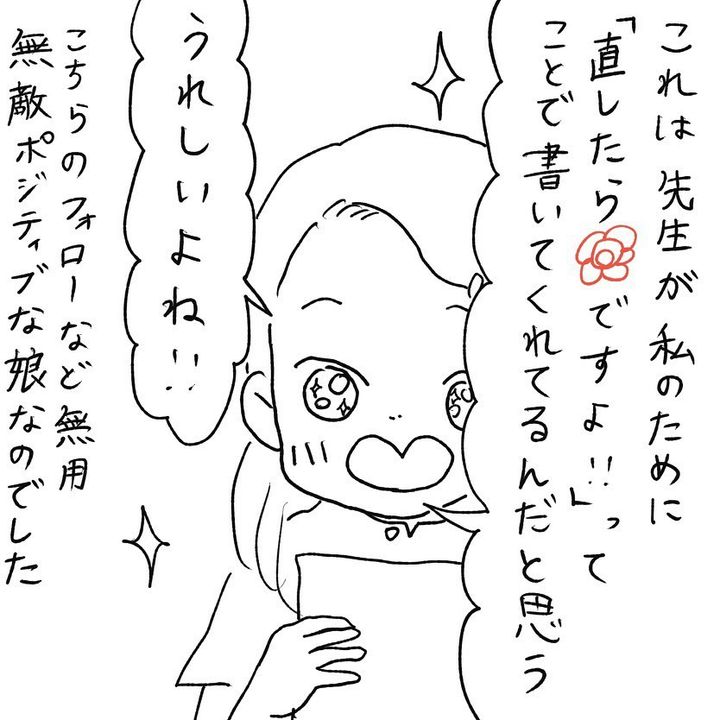 これは先生が私のために
「直したらですよ!!」って
ことで書いてくれてるんだと思う
うれしいよね!!
こちらのフォローなど無用
無敵ポジティブな娘なのでした